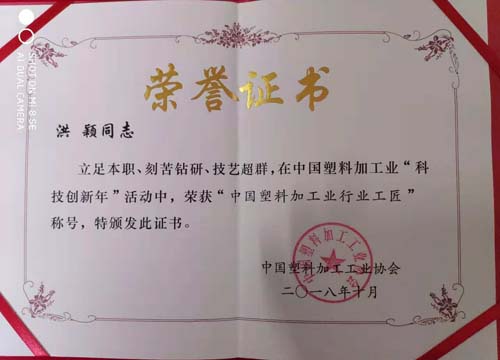 荣誉证书
洪 颖同志
立足本职、刻苦钻研、技艺超群，在中国塑料加工业“科
技创新年”活动中，荣获“中国塑料加工业行业工匠”
称号，特颁发此证书。
中国塑料加工工业协会
二〇一八年十月
中国塑料加工工业协会
SHOT ON MI 8 SE
AI DUAL CAMERA